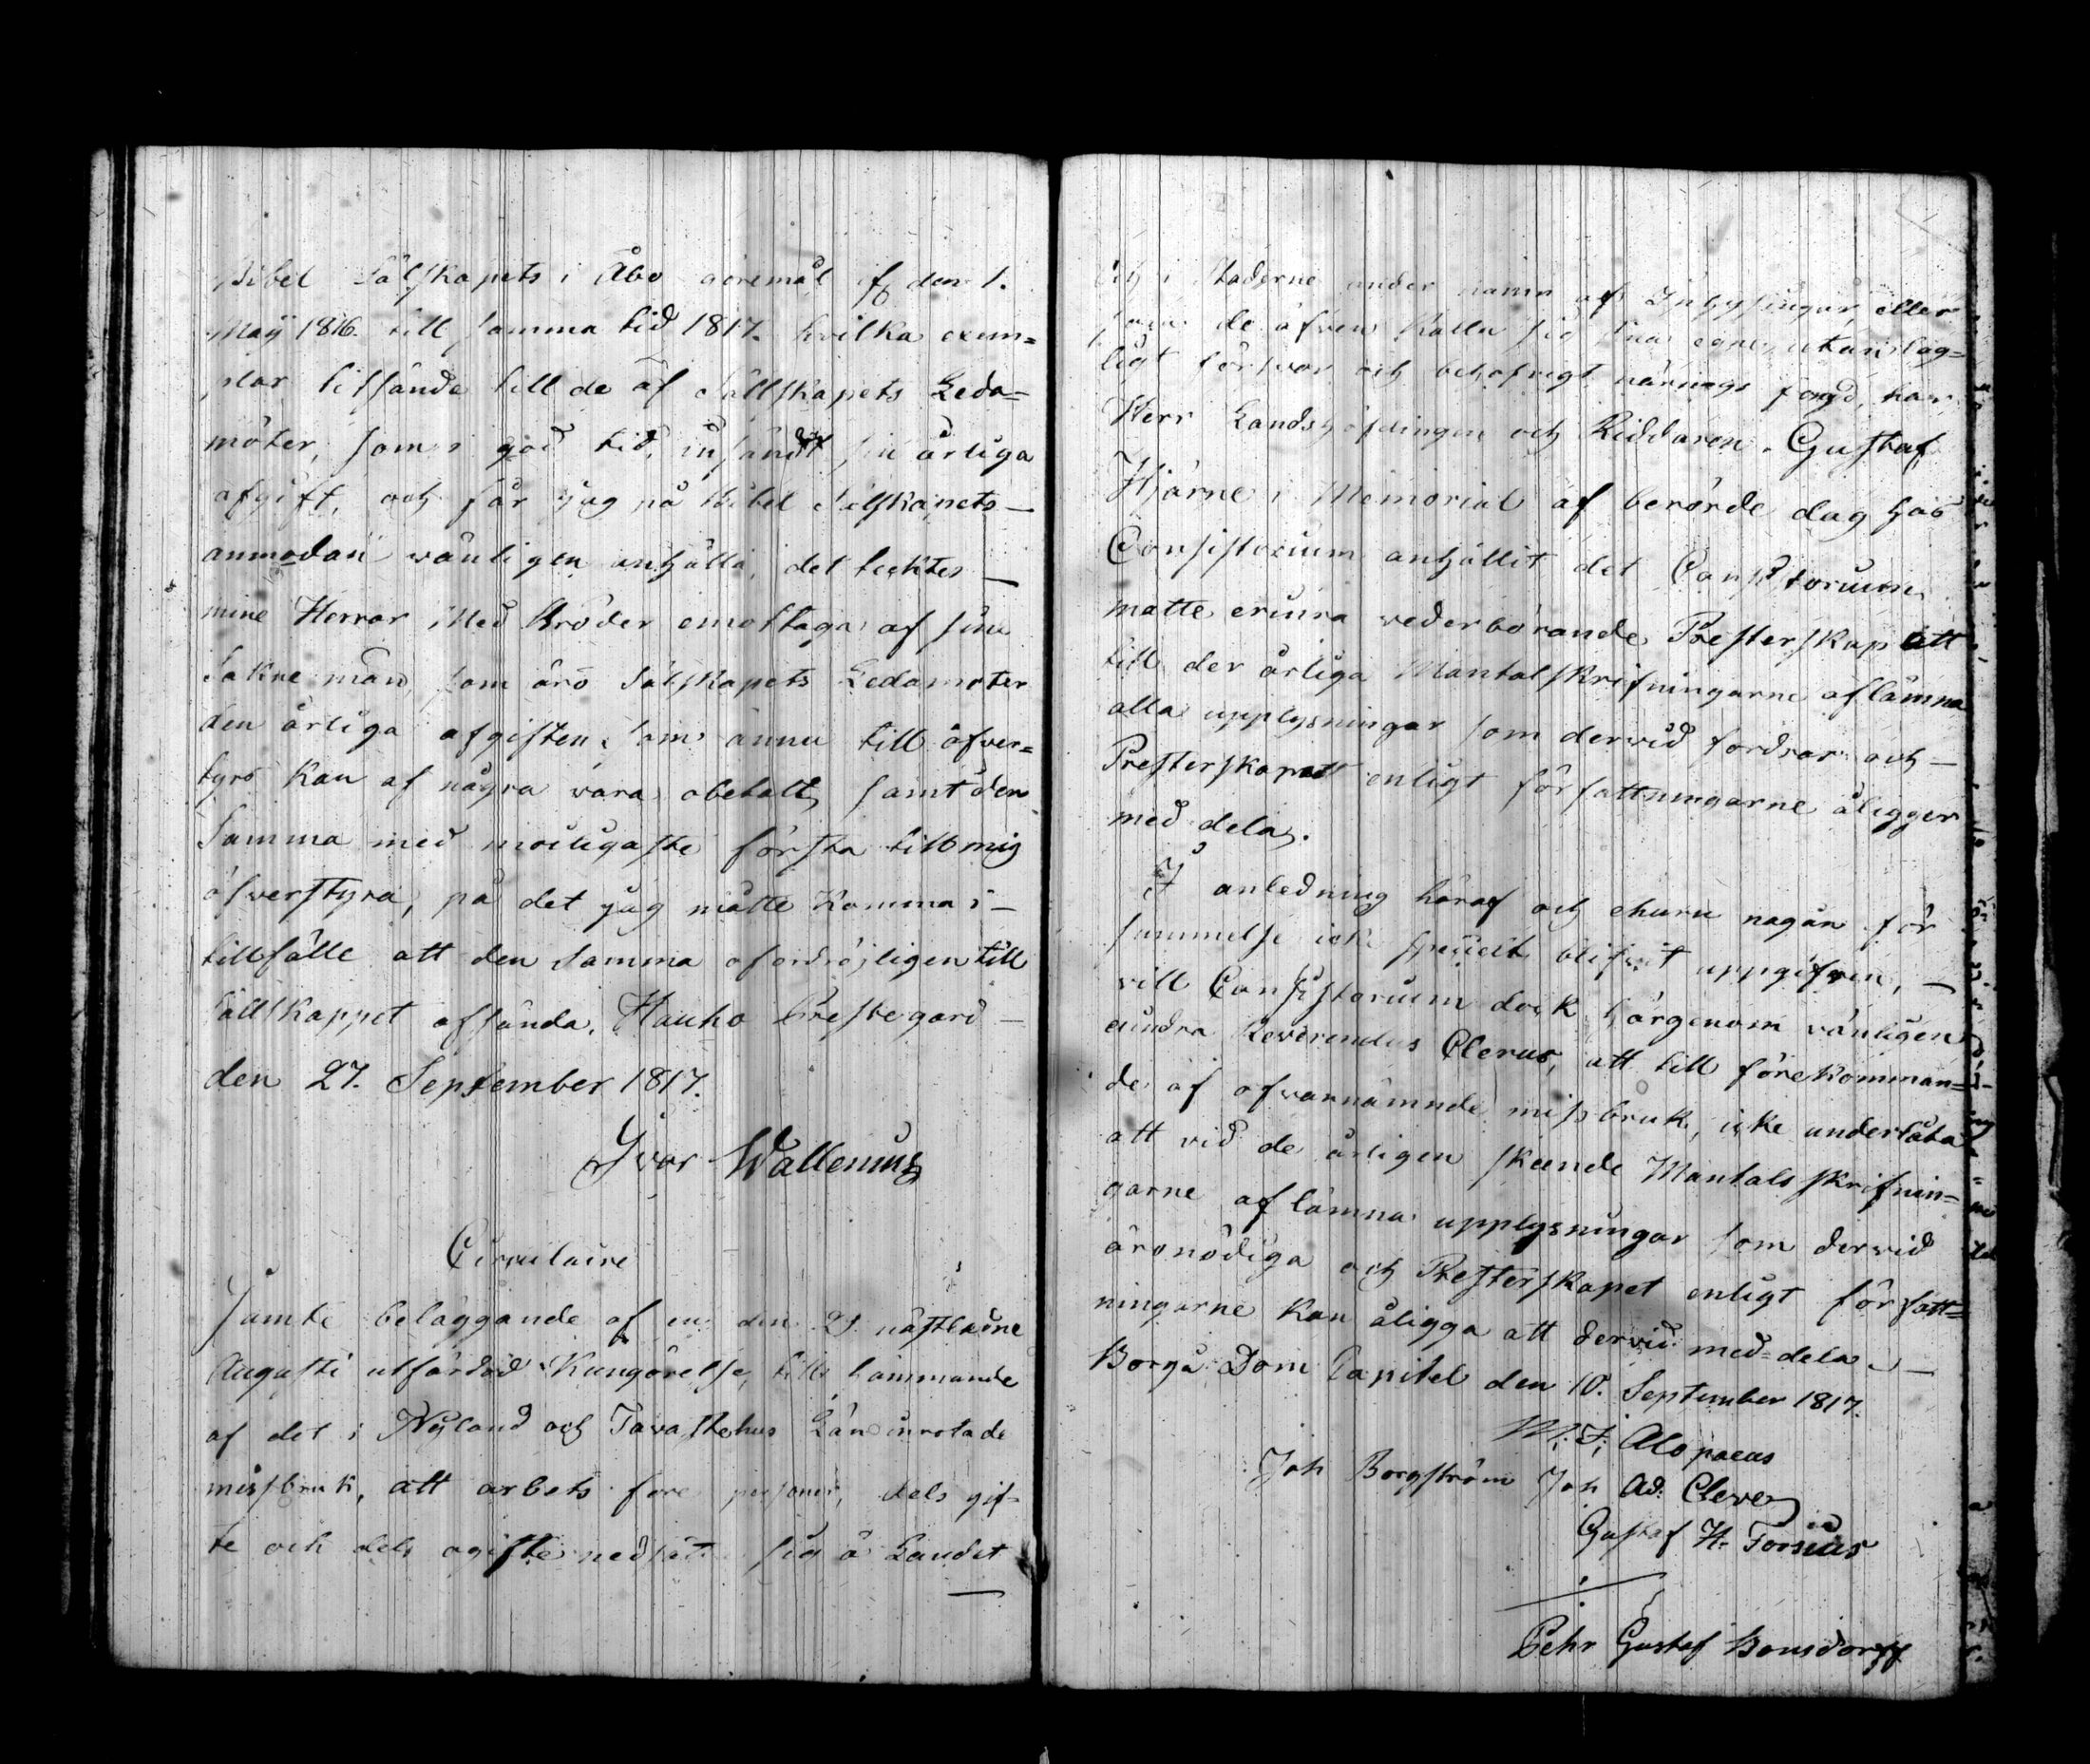 Bibel Sälskapets i Åbo göremål ifr den 1.
Maij 1816. till samma tid 1817. hvilka exem=
plar tilsände till de af Sällskapets Leda=
möter, som i god tid insändt sin årliga
afgift, och får jag på Bibel Sälskapets —
anmodan wänligen anhålla, det tecktes —
mine Herrar Med Bröder emottaga af sine
Sokne män, som äro Sälskapets Ledamöter
den årliga afgiften, som ännu till äfven=
tyrs kan af några vara obetalt, samt den
samma med möiligaste första till mig
öfverstyra, på det jag måtte komma i —
tillfälle att den samma ofördröjligen till
Sällskappet afsända. Hauho Prestegård —
den 27. September 1817.
Ivar Wallenius
Circulaire
Jämte beläggande af en den 21 nästledne
Augusti utfärdad Kungörelse, till hämmande
af det i Nyland och Tavastehus Län inrotade
missbruk, att arbets före personer, dels gif=
te och dels ogifte nedsätta sig å Landet
och i Städerne under namn af Inhysingar, eller
som de äfven kalla sig sina egna, utan lag=
ligt försvar och behöfvigt närings fång, har
Herr Landshöfdingen och Riddaren Gustaf
Hjärne i Memorial af berörde dag hos
Consistorium anhållit det Consistorium
måtte erinra vederbörande Presterskap att
till der årliga Mantalskrifningarne aflämna
alla upplysningar som dervid fordras och —
Presterskapet enligt författningarne åligger
med dela.
I anledning häraf och ehuru någon för
summelse icke specielt blifvit uppgifven, —
vill Consistorium dock härgenom vänligen
erindra Reverendus Clerus, att till förekomman=
de af ofvannämnde missbruk, icke underlåta
att vid de årligen skeende Mantals skrifnin=
garne aflämna upplysningar som dervid
äro nödiga och Presterskapet enligt författ=
ningarne kan åligga att dervid med=dela. —
Borgå Dom Capitel den 10. September 1817.
M: J: Alopaeus
Joh Borgström Joh Ad: Cleve
Gustaf H. Forsius
Pehr Gustaf Bonsdorff